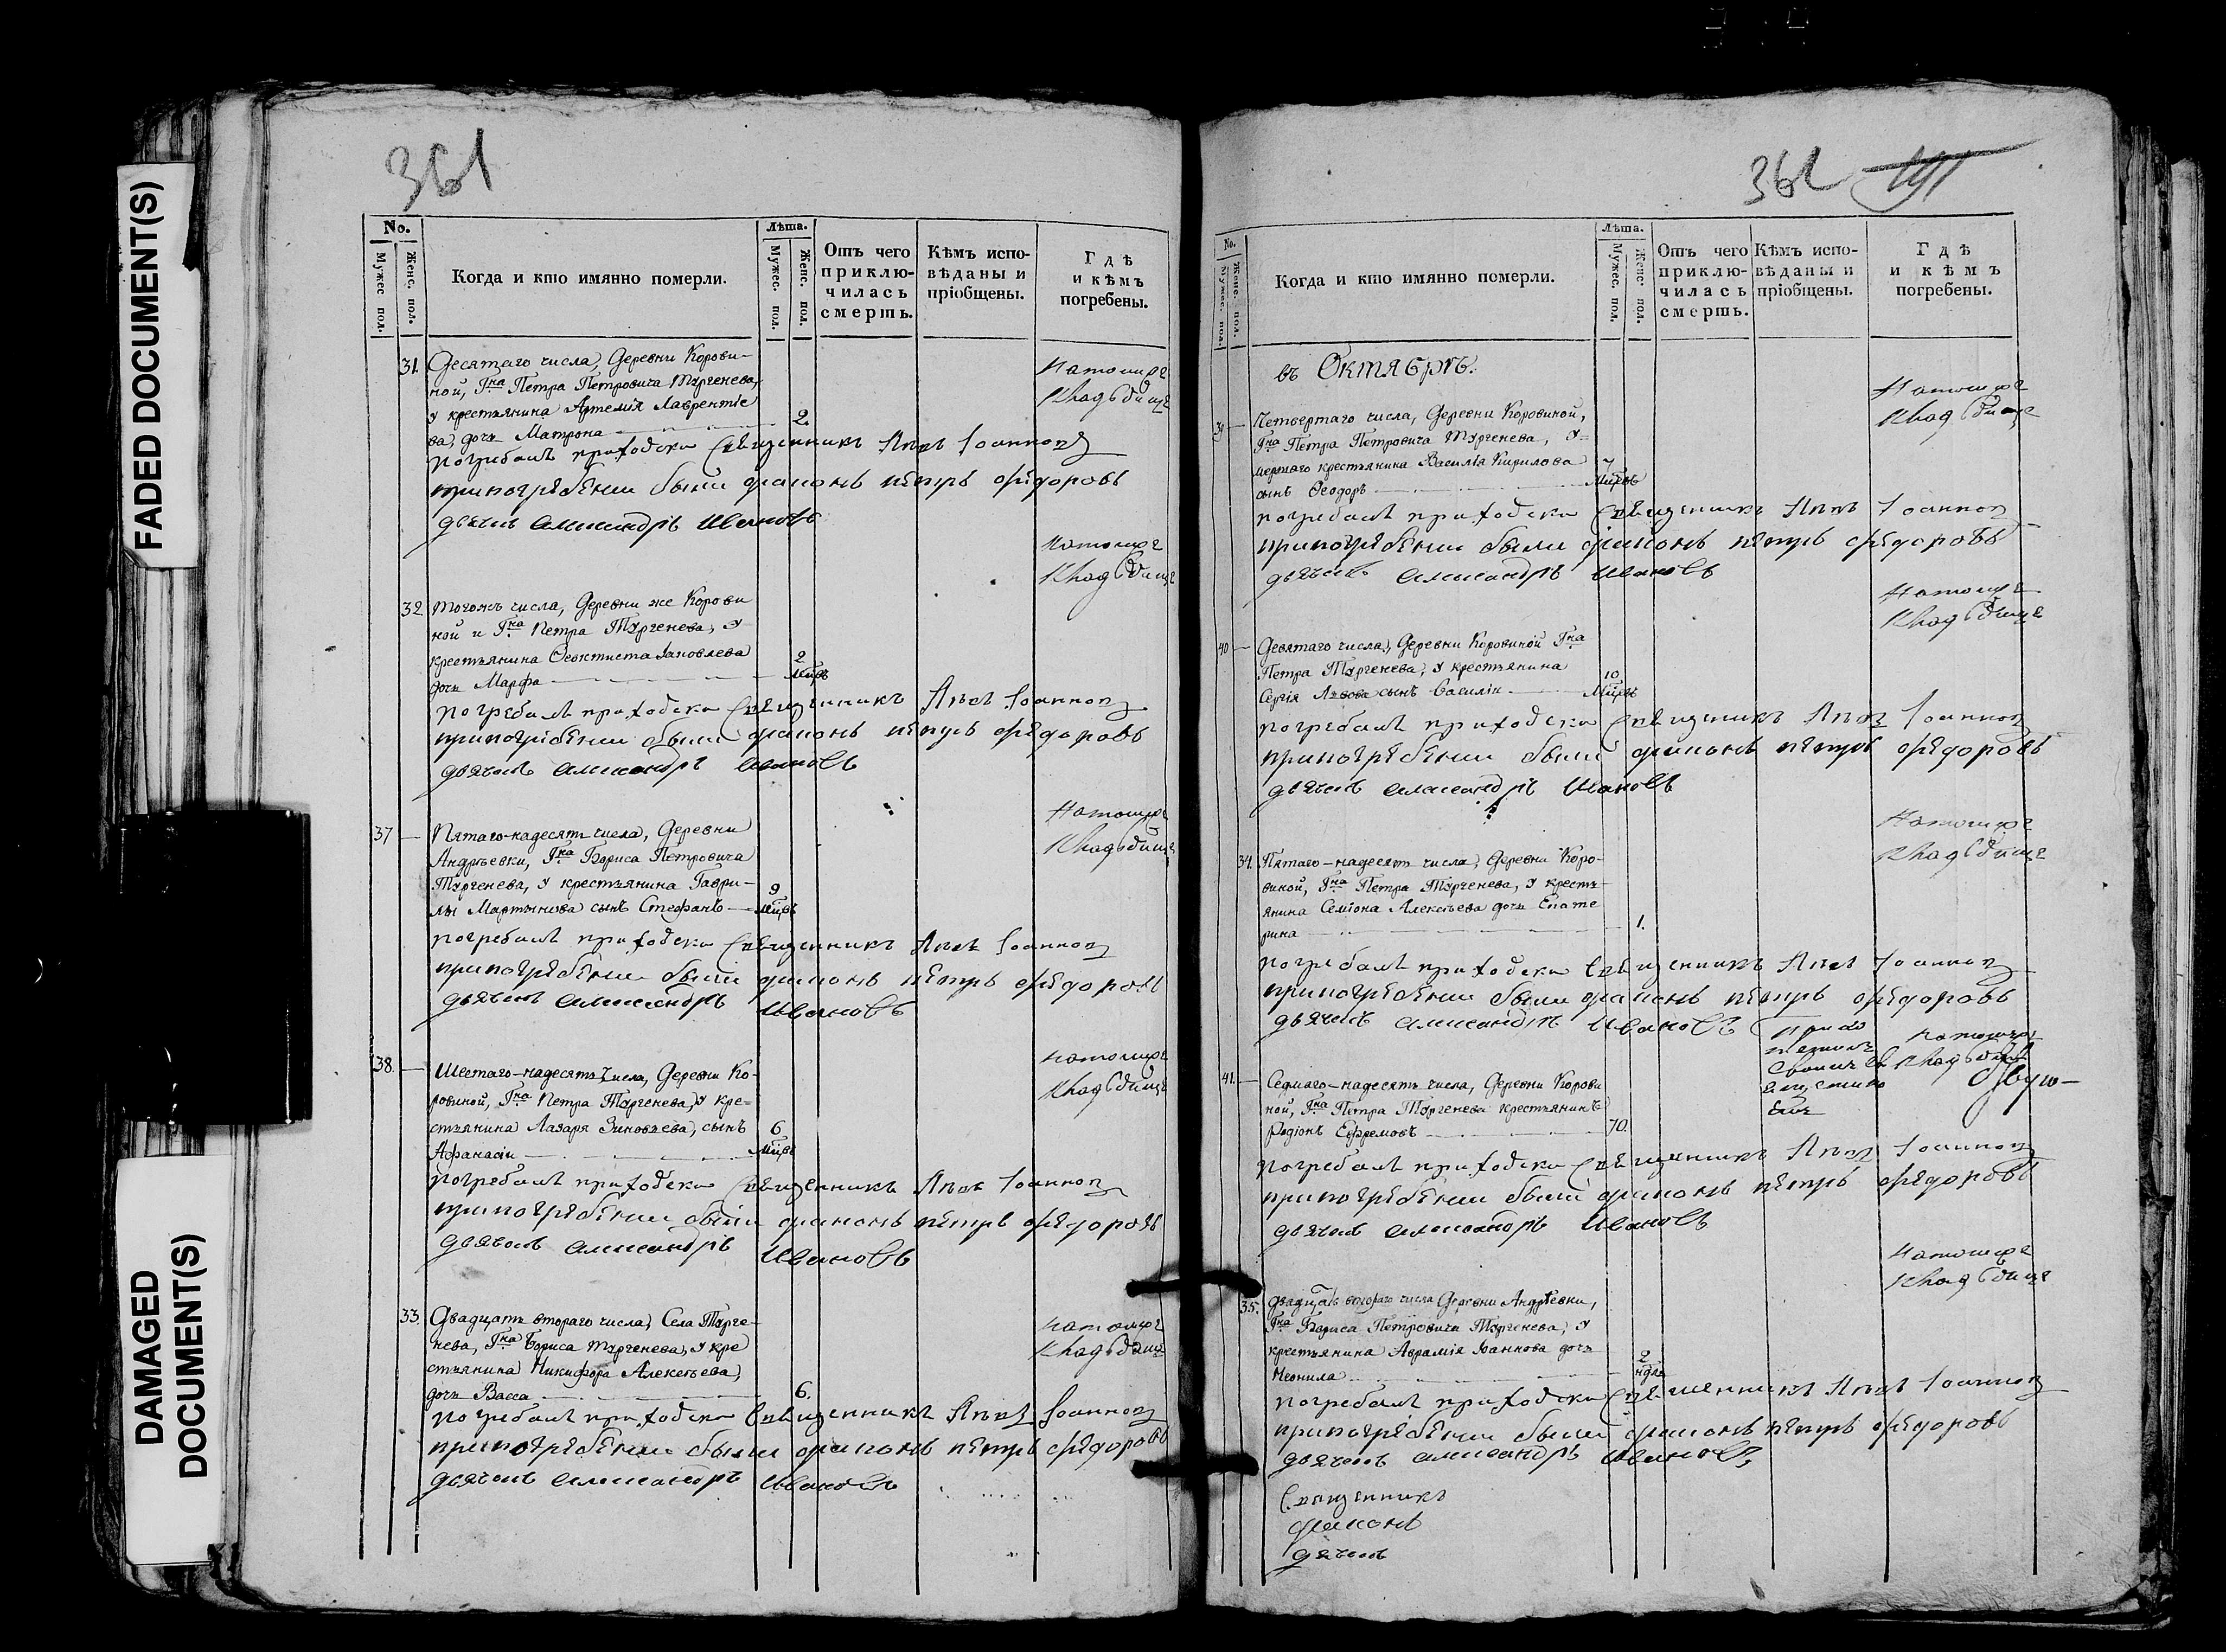 FADED DOCUMENT(S)
DAMAGED
DOCUMENT(S)
361
No.
Мужес пол.
Женс. пол.
Когда и кто имянно померли.
Лѣта.
Мужес. пол.
Женс. пол.
Отъ чего
приклю-
чилась
смерть.
Кѣмъ испо-
вѣданы и
пріобщены.
Гдѣ
и кѣмъ
погребены.
31. Десятаго числа, Деревни Корови-
ной, Гна Петра Петровича Тургенева,
у крестьянина Артемія Лаврентіе
ва, дочь Матрона 2.
на томже
кладбище
погребалъ приходски священникъ Іоаннъ
при погребении были диаконъ петръ федоровъ
дьячокъ александръ ивановъ
32 Тогожъ числа, Деревни же Корови
ной и Гна Петра Тургенева, у
крестьянина Ѳеоктиста Яковлева
дочь Марфа 2 мцвъ
на томже
кладбище
погребалъ приходски священникъ Іоаннъ
при погребении были диаконъ петръ федоровъ
дьячокъ александръ ивановъ
37 Пятаго-надесять числа, Деревни
Андреевки, Гна Бориса Петровича
Тургенева, у крестьянина Гаври-
лы Мартынова сынъ Стефанъ 9 мцвъ
на томже
кладбище
погребалъ приходски священникъ Іоаннъ
при погребении были диаконъ петръ федоровъ
дьячокъ александръ ивановъ
38. Шестаго-надесять числа, Деревни Ко-
ровиной, Гна Петра Тургенева, у кре-
стьянина Лазаря Зиновьева, сынъ
Афанасіи 6 мцвъ
на томже
кладбище
погребалъ приходски священникъ Іоаннъ
при погребении были диаконъ петръ федоровъ
дьячокъ александръ ивановъ
33. Двадцать втораго числа, Села Турге-
нева, Гна Бориса Тургенева, у кре
стьянина Никифора Алексѣева,
дочь Васса 6.
на томже
кладбище
погребалъ приходски священникъ Іоаннъ
при погребении были диаконъ петръ федоровъ
дьячокъ александръ ивановъ
362 191
No.
Мужес. пол.
Женс. пол.
Когда и кто имянно померли.
Лѣта.
Мужес. пол.
Женс. пол.
Отъ чего
приклю-
чилась
смерть.
Кѣмъ испо-
вѣданы и
пріобщены.
Гдѣ
и кѣмъ
погребены.
въ Октябрѣ.
39 Четвертаго числа, Деревни Коровиной,
Гна Петра Петровича Тургенева, у-
мершаго крестьянина Василія Кирилова
сынъ Ѳеодоръ 7 мцвъ
на томже
кладбище
погребалъ приходски священникъ Іоаннъ
при погребении были диаконъ петръ федоровъ
дьячокъ александръ ивановъ
40 Девятаго числа, Деревни Коровиной Гна
Петра Тургенева, у крестьянина
Сергія Львова сынъ Василіи 10 мцвъ
на томже
кладбище
погребалъ приходски священникъ Іоаннъ
при погребении были диаконъ петръ федоровъ
дьячокъ александръ ивановъ
34. Пятаго-надесять числа, Деревни Коро-
виной, Гна Петра Тургенева, у кресть-
янина Семіона Алексѣева дочь Екате
рина 1.
на томже
кладбище
погребалъ приходски священникъ Іоаннъ
при погребении были диаконъ петръ федоровъ
дьячокъ александръ ивановъ
41. Седмаго-надесять числа, Деревни Корови
ной, Гна Петра Тургенева крестьянинъ
Родіонъ Ефремовъ 70.
на томже
кладбище
погребалъ приходски священникъ Іоаннъ
при погребении были диаконъ петръ федоровъ
дьячокъ александръ ивановъ
35. Двадцать втораго числа Деревни Андрѣевки,
Гна Бориса Петровича Тургенева, у
крестьянина Аврамія Іоаннова дочь
Неонила 2 ндѣл
на томже
кладбище
погребалъ приходски священникъ Іоаннъ
при погребении были диаконъ петръ федоровъ
дьячокъ александръ ивановъ
Священникъ
диаконъ
дячокъ